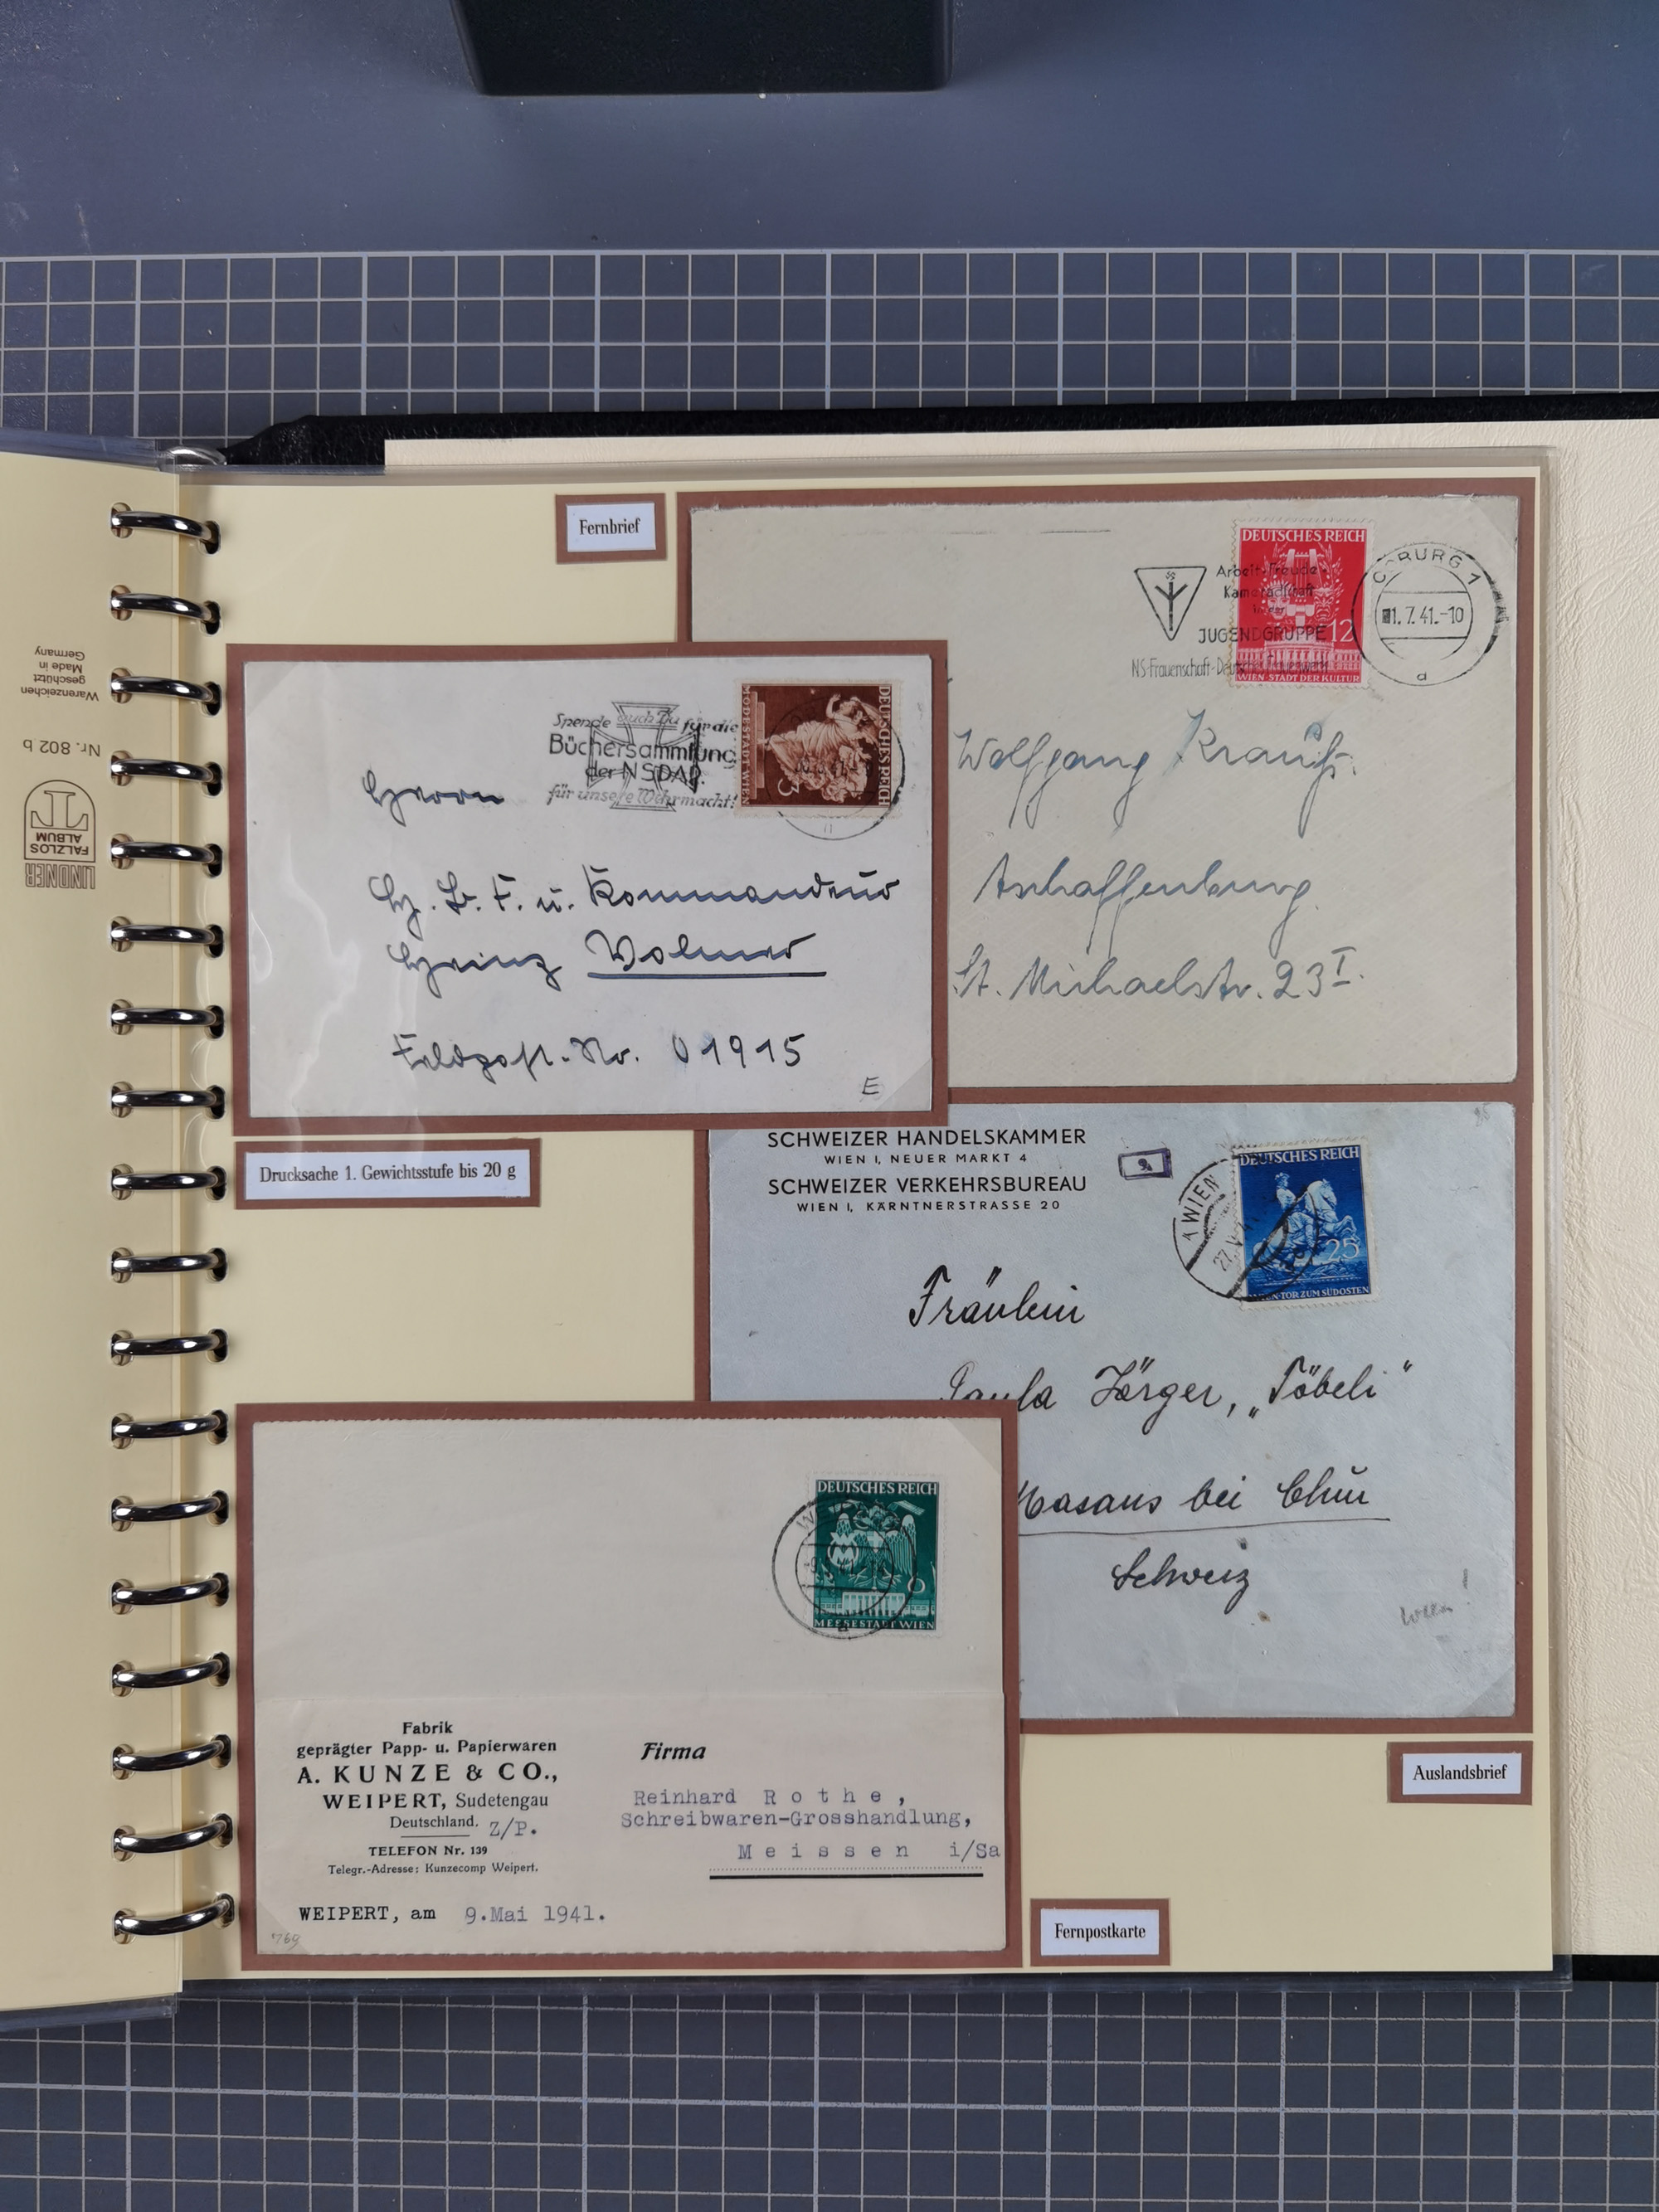 Fernbrief
DEUTSCHES REICH
Arbeit-Freude-
Kameradschaft
in der
JUGENDGRUPPE
NS-Frauenschaft-Deutsches Frauenwerk
12
WIEN·STADT DER KULTUR
COBURG 1
1.7.41.-10
d
Wolfgang Krauß.
Aschaffenburg.
St. Michaelstr. 23 I.
Spende auch Du für die
Büchersammlung
der NSDAP.
für unsere Wehrmacht!
MODESTADT WIEN
3
DEUTSCHES REICH
Herrn
Heinz Volmer
Feldpost-Nr. 01915
E
Drucksache 1. Gewichtsstufe bis 20 g
SCHWEIZER HANDELSKAMMER
WIEN I, NEUER MARKT 4
SCHWEIZER VERKEHRSBUREAU
WIEN I, KÄRNTNERSTRASSE 20
WIEN
DEUTSCHES REICH
25
WIEN·TOR ZUM SÜDOSTEN
Fräulein
Paula Jörger, „Töbeli"
Masans bei Chur
Schweiz
Wien!
Auslandsbrief
DEUTSCHES REICH
6
MESSESTADT WIEN
Fabrik
geprägter Papp- u. Papierwaren
A. KUNZE & CO.,
WEIPERT, Sudetengau
Deutschland. Z/P.
TELEFON Nr. 139
Telegr.-Adresse: Kunzecomp Weipert.
Firma
Reinhard Rothe,
Schreibwaren-Grosshandlung,
Meissen i/Sa
WEIPERT, am 9.Mai 1941.
769
Fernpostkarte
Warenzeichen
geschützt
Made in
Germany
Nr. 802 b
FALZLOS
ALBUM
LINDNER